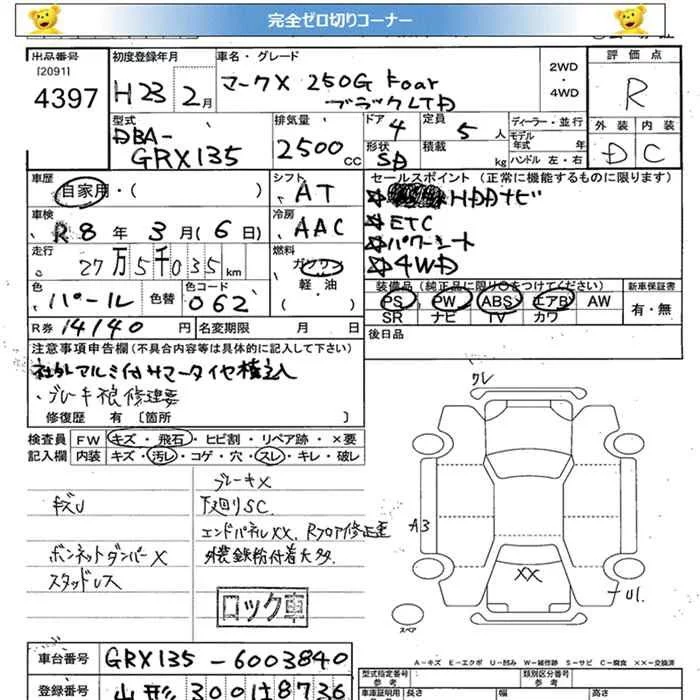 完全ゼロ切りコーナー
出品番号
[2091]
4397
初度登録年月
H23 2月
車名・グレード
マークX 250G Four
ブラックLTD
2WD
・
4WD
評価点
R
外装 内装
D C
型式
DBA-
GRX135
排気量
2500cc
ドア 4
形状 SD
定員 5人
積載 kg
ディーラー・並行
モデル
年式 年
ハンドル 左・右
車歴
自家用・( )
シフト
AT
車検
R8年 3月(6日)
冷房
AAC
走行
27万5千035km
燃料
ガソリン
軽・油
( )
色
パール
色替
色コード
062
R券 14140円
名変期限 月 日
セールスポイント (正常に機能するものに限ります)
☆ HDDナビ
☆ETC
☆パワーシート
☆4WD
装備品 (純正品に限り○をつけてください)
PS PW ABS エアB AW
SR ナビ TV カワ
新車保証書
有・無
後日品
注意事項申告欄(不具合内容等は具体的に記入して下さい)
社外アルミ付サマータイヤ積込
・ブレーキ 修理要
修復歴 有〔箇所 〕
検査員 FW キズ・飛石・ヒビ割・リペア跡・×要
記入欄 内装 キズ・汚レ・コゲ・穴・スレ・キレ・破レ
ブレーキX
キズU
下廻りSC.
エンドパネルXX、Rフロア修正歪
ボンネットダンパーX
外装鉄粉付着大多.
スタッドレス
ロック車
ワレ
A3
XX
U1.
スペア
A-キズ E-エクボ U-凹み W-補修跡 S-サビ C-腐食 XX-交換済
車台番号 GRX135-6003840
登録番号 山形 300 は 8736
型式指定番号
参考
類別区分番号
参考
車庫証明用
参考
長さ 幅 高さ